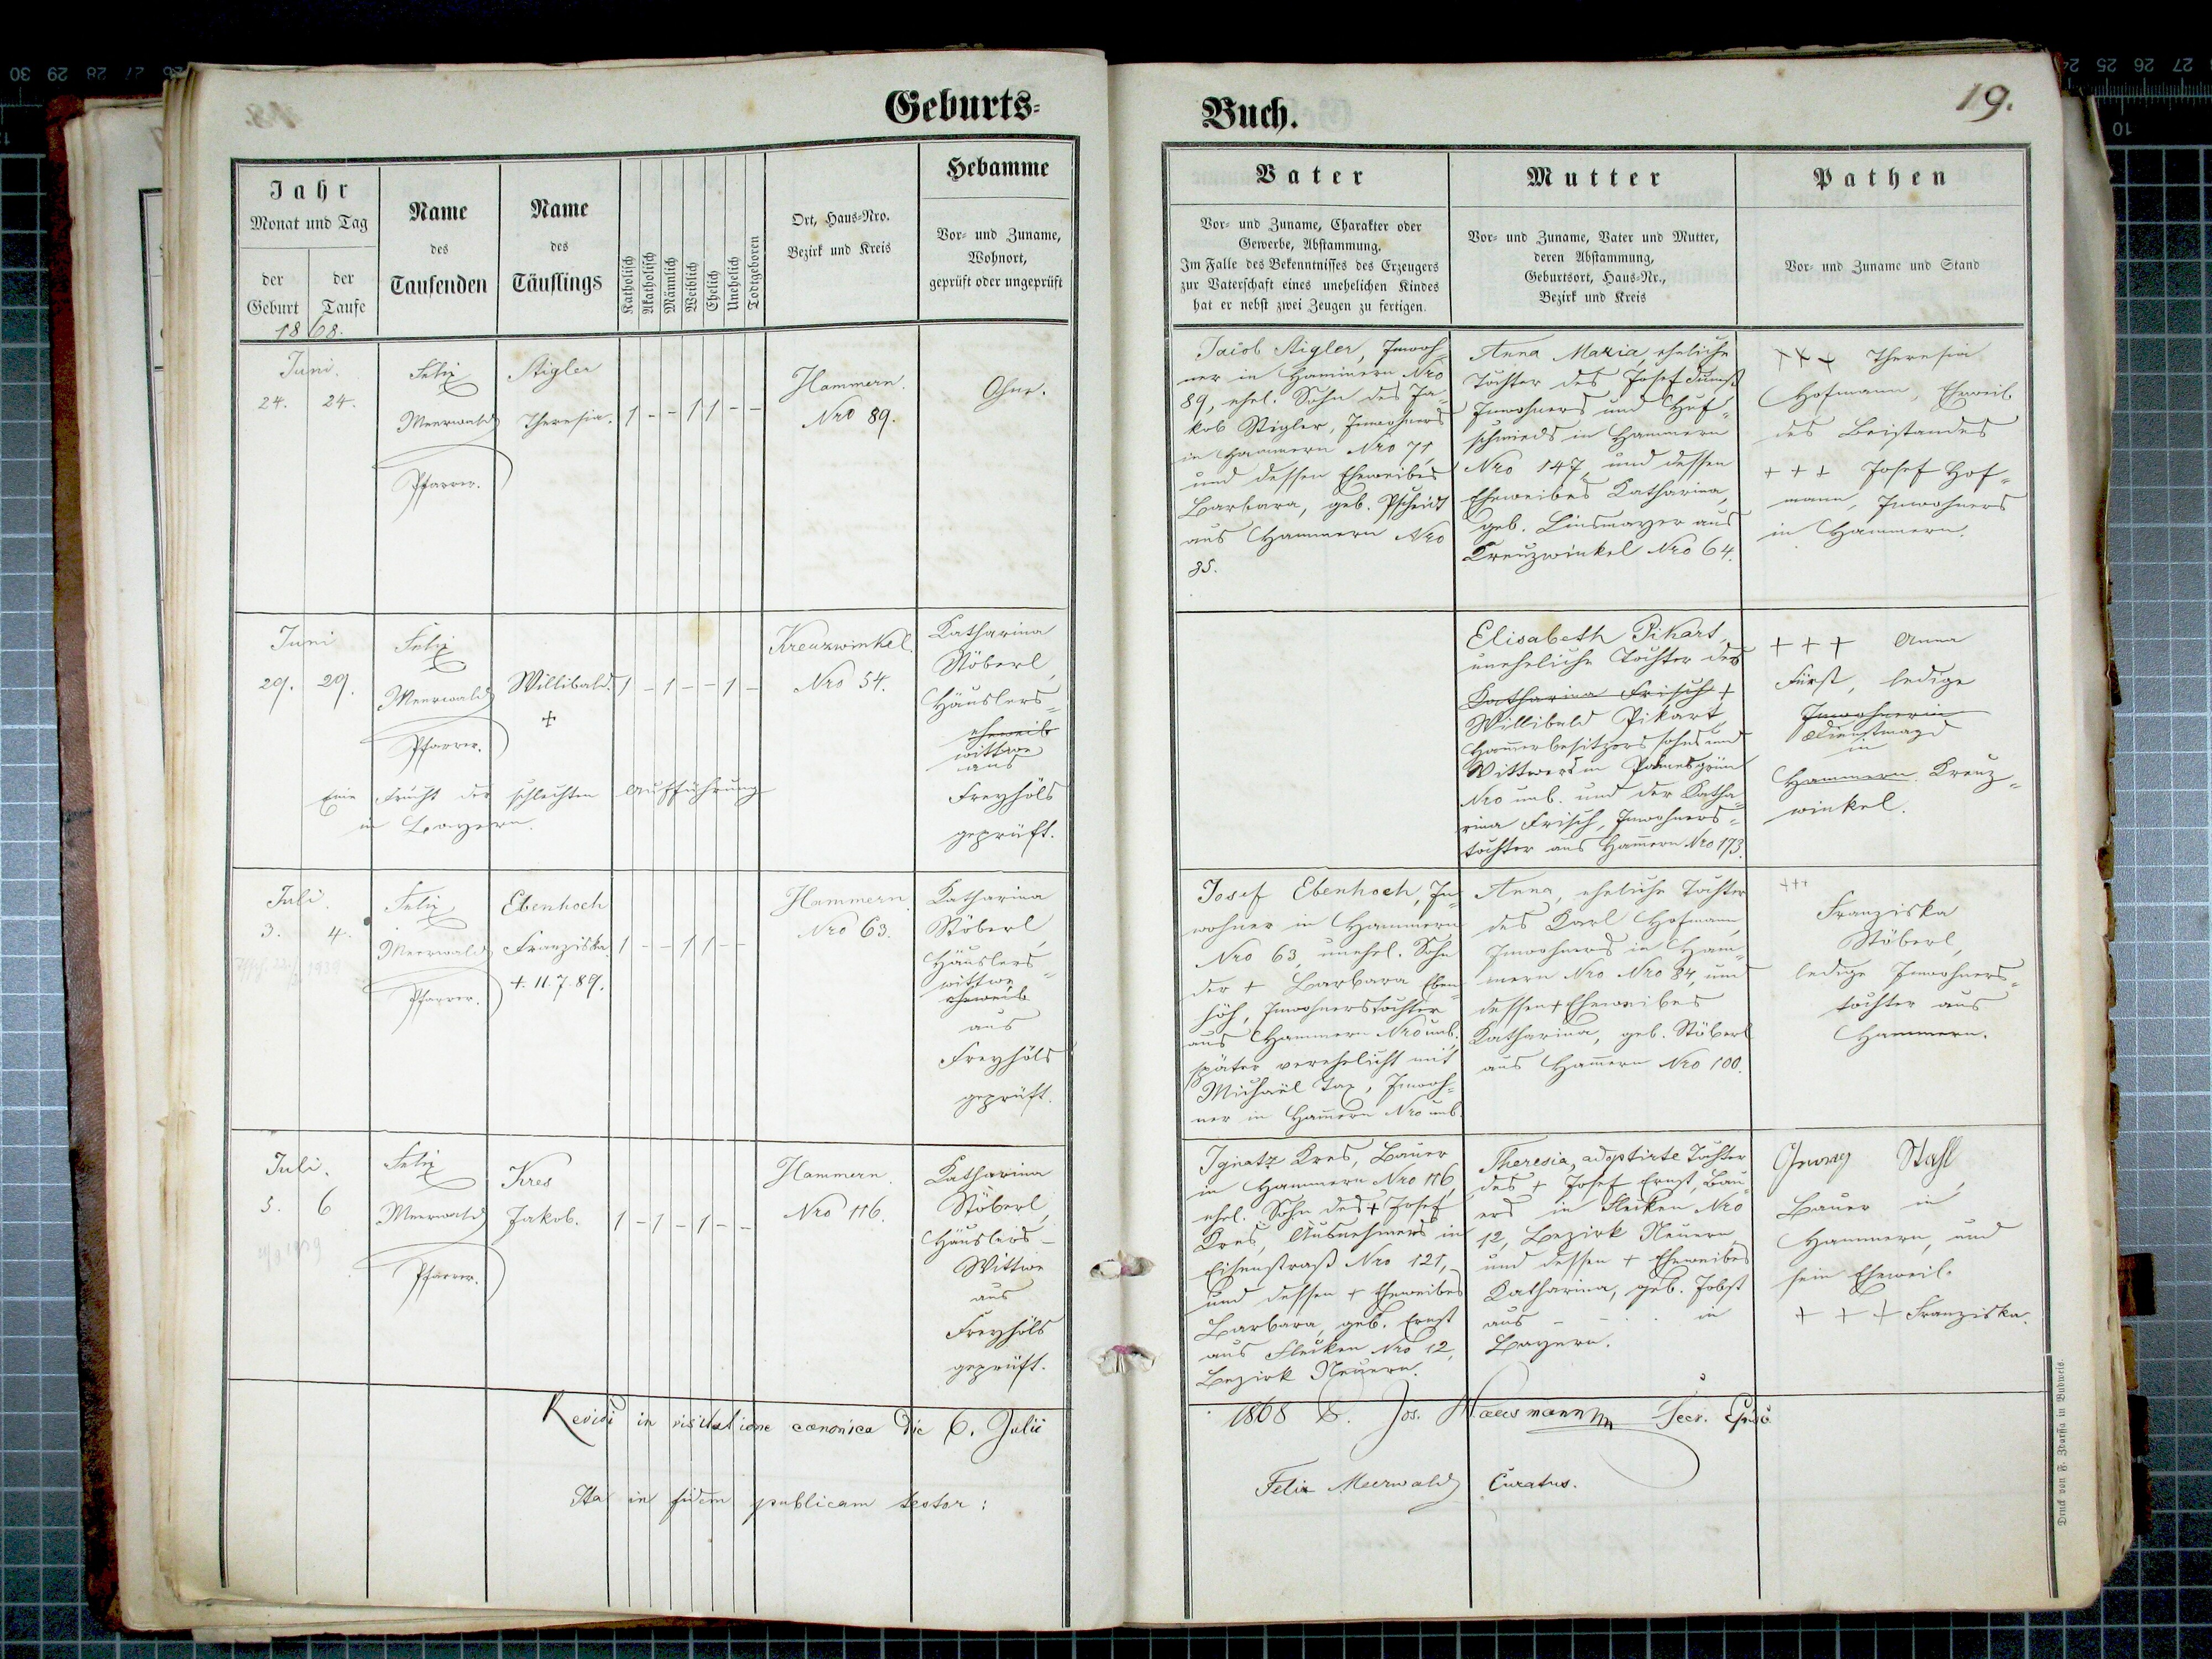 Geburts-
Jahr
Monat und Tag
der Geburt
der Taufe
1868.
Name des Taufenden
Name des Täuflings
Katholisch
Akatholisch
Männlich
Weiblich
Ehelich
Unehelich
Todtgeboren
Ort, Haus-Nro.
Bezirk und Kreis
Hebamme
Vor- und Zuname,
Wohnort,
geprüft oder ungeprüft
Juni.
24. 24.
Felix
Meerwald
Pfarrer.
Aigler
Theresia.
1 - - 1 1 - -
Hammern.
Nro 89.
Ohne.
Juni
29. 29.
Felix
Meerwald
Pfarrer.
Willibald.
+
1 - 1 - - 1 -
Kreuzwinkel.
Nro 54.
Katharina
Stöberl,
Häuslers-
eheweib
wittwe
aus
Freyhöls
geprüft.
Eine Frucht der schlechten Aufführung
in Bayern.
Juli.
3. 4.
Felix
Meerwald
Pfarrer.
Ebenhoch
Franziska.
+. 11.7.89.
1 - - 1 1 - -
Hammern.
Nro 63.
Katharina
Stöberl,
Häuslers-
wittwe
eheweib
aus
Freyhöls
geprüft.
Juli.
5. 6
Felix
Meerwald
Pfarrer.
Kres
Jakob.
1 - 1 - 1 - -
Hammern.
Nro 116.
Katharina
Stöberl,
Häuslers-
Wittwe
aus
Freyhöls
geprüft.
Revidi in visitatione canonica die 6. Julii
Ita in fidem publicam testor:
Buch.
19.
Vater
Vor- und Zuname, Charakter oder
Gewerbe, Abstammung.
Im Falle des Bekenntnisses des Erzeugers
zur Vaterschaft eines unehelichen Kindes
hat er nebst zwei Zeugen zu fertigen.
Mutter
Vor- und Zuname, Vater und Mutter,
deren Abstammung,
Geburtsort, Haus-Nr.,
Bezirk und Kreis
Pathen
Vor- und Zuname und Stand
Jakob Aigler, Inwoh-
ner in Hammern Nro
89, ehel. Sohn des Ja-
kob Aigler, Inwohners
in Hammern Nro 71,
und dessen Eheweibes
Barbara, geb. Pscheidt
aus Hammern Nro
35.
Anna Maria, eheliche
Tochter des Josef
Inwohners und Huf-
schmieds in Hammern
Nro 147, und dessen
Eheweibes Katharina,
geb. Linsmayer aus
Kreuzwinkel Nro 64.
+++ Theresia
Hofmann, Eheweib
des Beistandes
+++ Josef Hof-
mann, Inwohners
in Hammern.
Elisabeth Pikart,
uneheliche Tochter des
Katharina Frisch +
Willibald Pikart,
Hammerbesitzers sohns und
Wittwers in
Nro unb. und der Katha-
rina Frisch, Inwohners-
tochter aus Hammern Nro 173.
+++ Anna
Fürst, ledige
Inwohnerin
Dienstmagd
in
Hammern Kreuz-
winkel.
Josef Ebenhoch, In-
wohner in Hammern
Nro 63, unehel. Sohn
der + Barbara Eben-
höh, Inwohnerstochter
aus Hammern Nro unb.
später verehelicht mit
Michaël Tax, Inwoh-
ner in Hammern Nro unb.
Anna, eheliche Tochter
des Karl Hofmann,
Inwohners in Ham-
mern Nro Nro 84, und
dessen + Eheweibes
Katharina, geb. Stöberl
aus Hammern Nro 100.
+++
Franziska
Stöberl,
ledige Inwohners-
tochter aus
Hammern.
Ignatz Kres, Bauer
in Hammern Nro 116,
ehel. Sohn des + Josef
Kres, Ausnehmers in
Eisenstraß Nro 121,
und dessen + Eheweibes
Barbara, geb. Ernst
aus Flecken Nro 12,
Bezirk Neuern.
Theresia, adoptirte Tochter
des + Josef Ernst, Bau-
ers in Flecken Nro
12, Bezirk Neuern
und dessen + Eheweibes
Katharina, geb. Jobst
aus - - in
Bayern.
Georg Stahl,
Bauer in
Hammern, und
sein Eheweib
+ + + Franziska.
1868 Jos. Secr.
Felix Meerwald Curatus.
Druck von F. Zdarssa in Budweis.